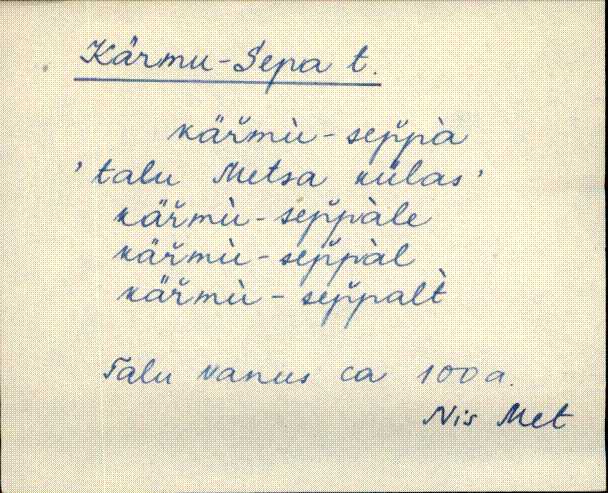 Kärmu-Sepa t.
kär̆mù-sep̆pà
'talu Metsa külas'
kär̆mù-sep̆pàle
kär̆mù-sep̆pàl
kär̆mù-sep̆palt̀
Talu vanus ca 100 a.
Nis Met